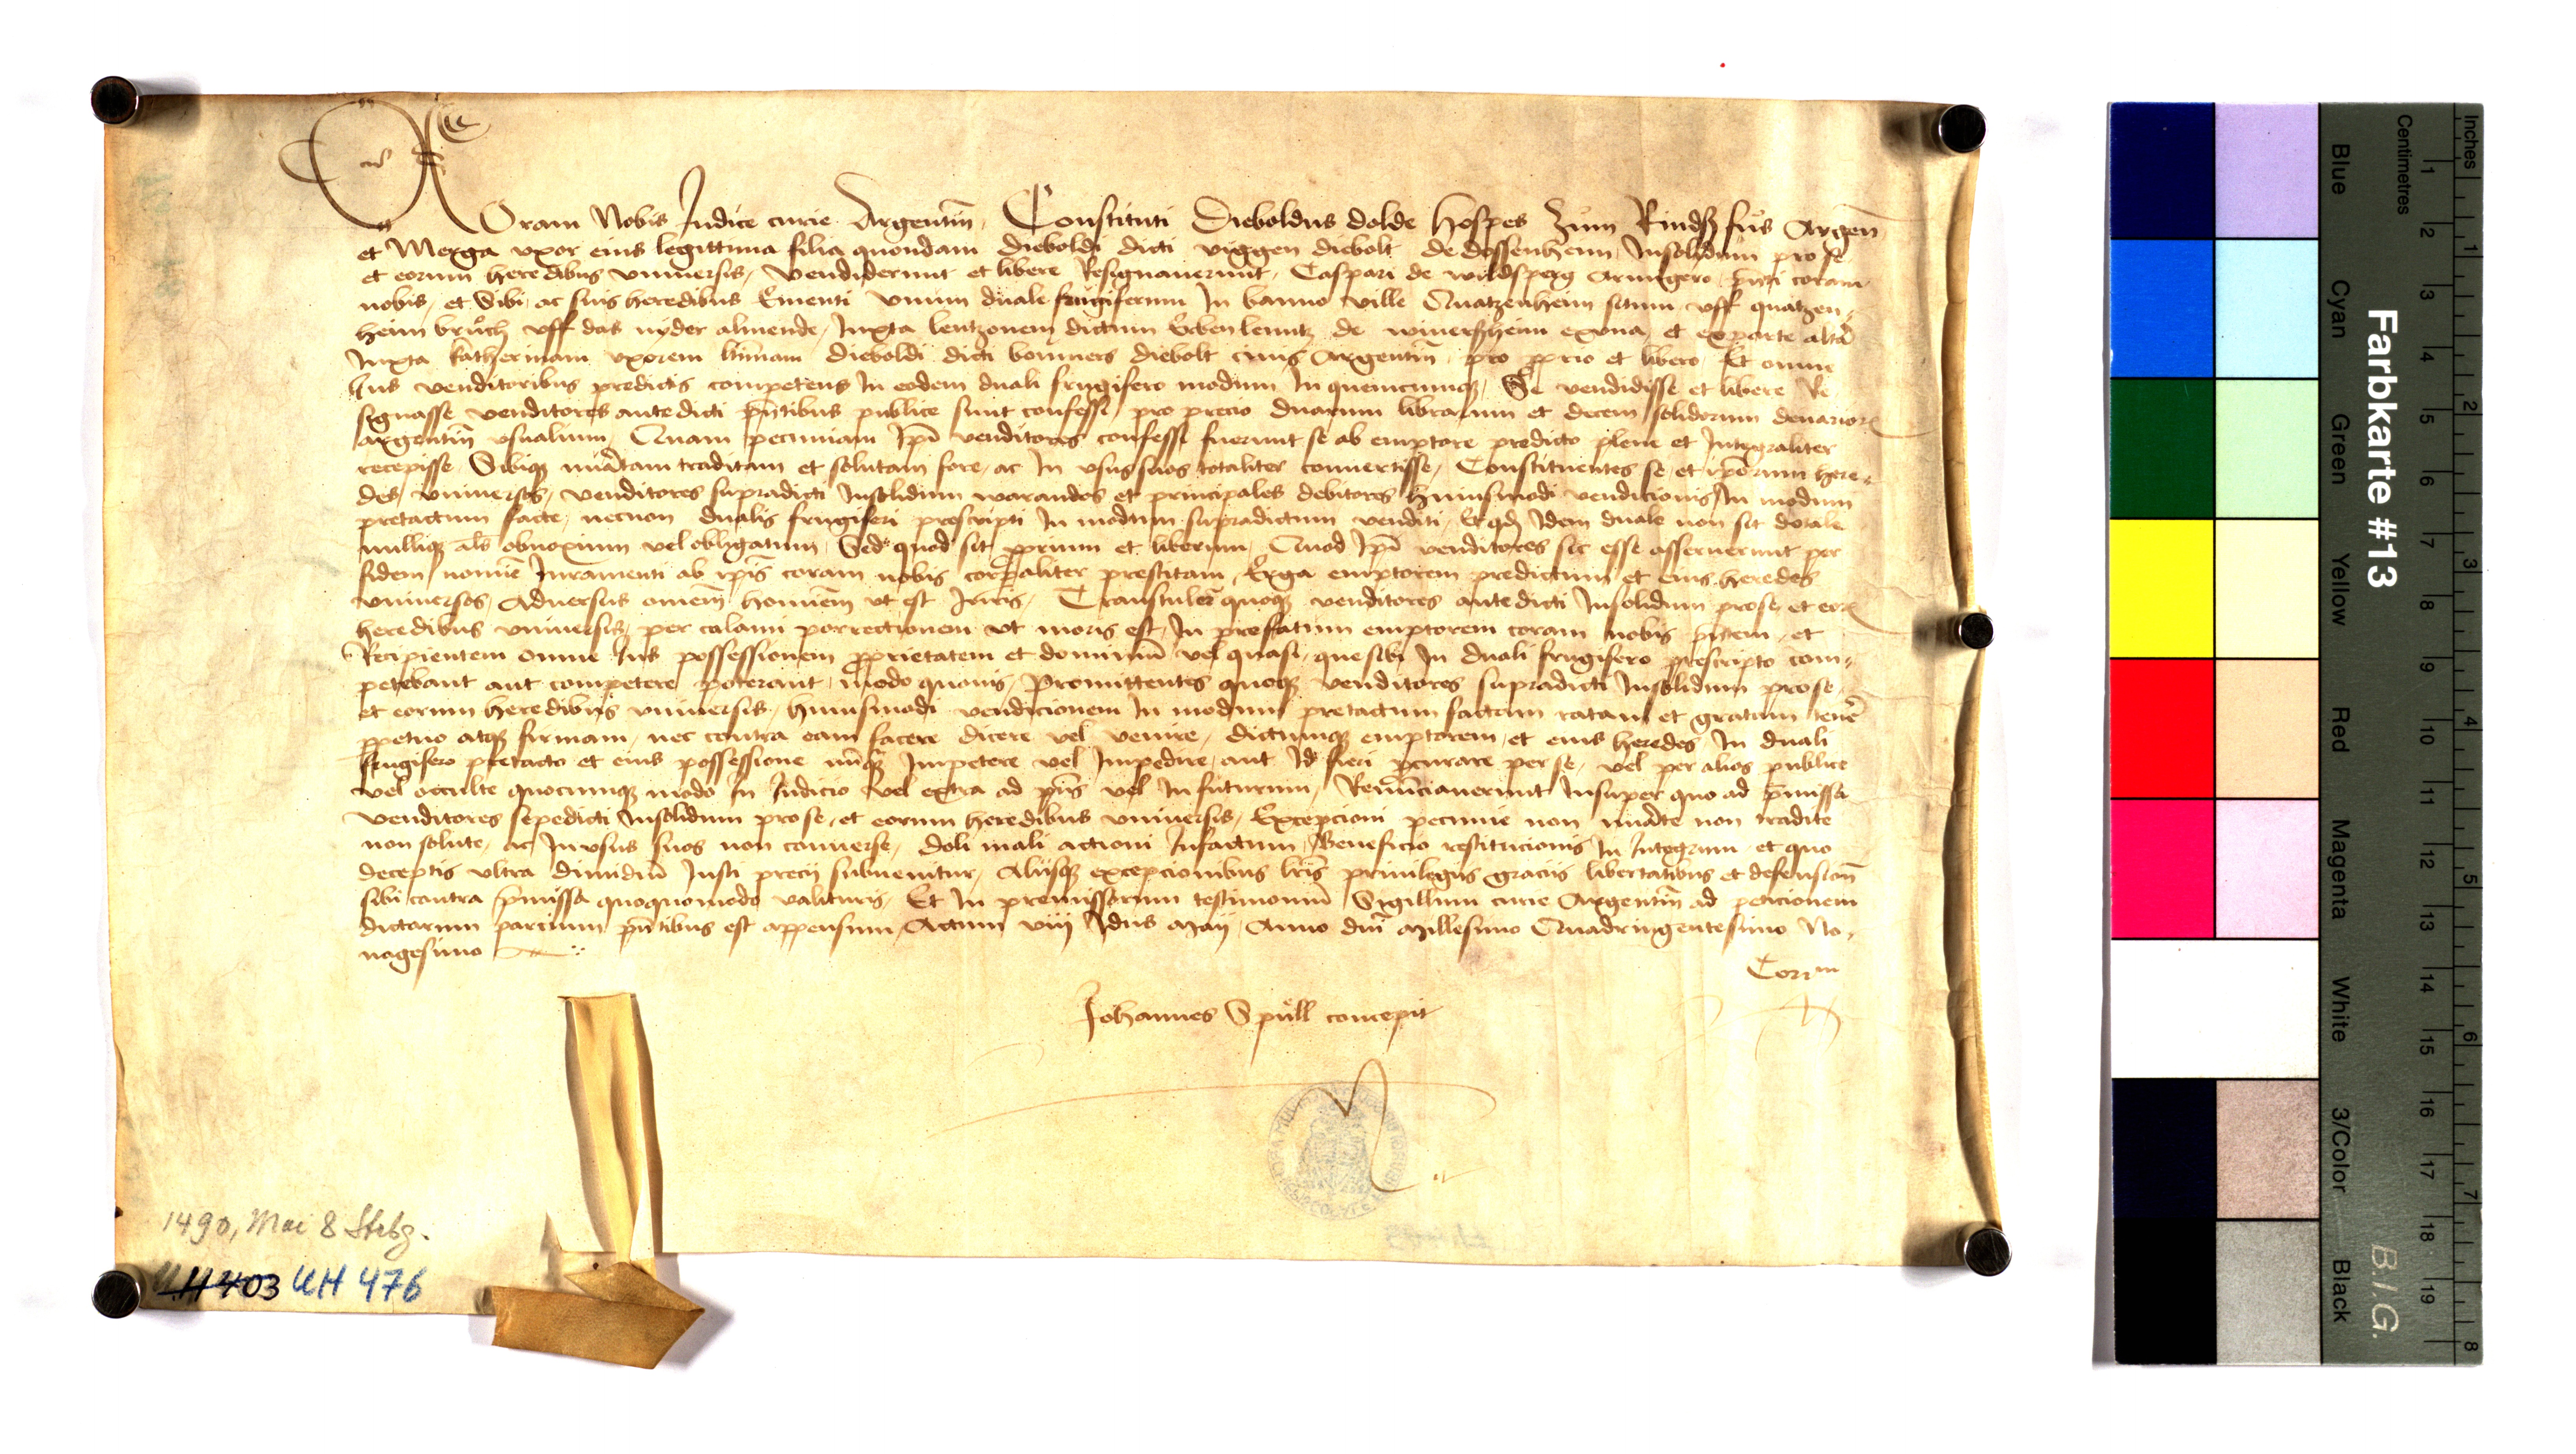 Coram Nobis Judice curie Argentin̄ Constituti Dieboldus dolde hospes Zům Rindßfůs Argen̄
et Merga vxor eius legittima filia quondam Dieboldi dicti viggen diebolt de dossenheim Insolidum pro se
et eorum heredibus vniuersis, vendiderunt et libere Resignauerunt, Caspari de wildsperg armigero, p̄nti coram
nobis, et Sibi, ac suis heredibus Ementi vnum duale frugiferum In banno ville Quatzenheim situm vff quatzen-
heim brůch vff das nyder almende, Juxta lentzonem dictum lentz de winerßheim exvna et exparte altā
Juxta katherinam vxorem ltīmam Dieboldi dicti bonners diebolt ciuis Argentin̄, pro proprio et libero, Et omne
Jus venditoribus predictis competens In eodem duali frugifero modum In quemcumqȝ, Se vendidisse et libere Re-
signasse venditores antedicti p̄ntibus publice sunt confessi, pro precio duarum librarum et decem solidorum denarior̄
argentin̄ vsualium, Quam pecuniam Ip̄i venditores confessi fuerunt se ab emptore predicto plene et Integraliter
recepisse Sibiqȝ nūatam traditam et solutam fore, ac In vsus suos totaliter conuertisse, Constituentes se, et ip̄orum here-
des vniuersos, venditores supradicti Insolidum warandos et principales debitores huiusmodi vendicionis In modum
pretactum facte, necnon dualis frugiferi prescripti In modum supradictum venditi, Et qd̄ Idem duale non sit dotale
nulliqȝ al̄s obnoxium vel obligatum, Sed quod sit proprium et liberum, Quod Ip̄i venditores sic esse asseruerunt per
fidem nomīe Juramenti ab ip̄is coram nobis corporaliter prestitam, Erga emptorem predictum et eius heredes
vniuersos, Aduersus omnem̄ hominem̄ vt est Juris, Transtuler̄ quoqȝ venditores antedicti Insolidum prose, et eor̄
heredibus vniuersis, per calami porrectionem vt moris est, In prefatum emptorem coram nobis p̄ntem, et
Recipientem omne Jus possessionem proprietatem et dominiū vel quasi, que sibi In duali frugifero prescripto com-
petebant aut competere poterant, modo quouis, Promittentes quoqȝ venditores supradicti Insolidum prose,
et eorum heredibus vniuersis, huiusmodi vendicionem In modum pretactum factam ratam et gratam tenēr
perpetuo atqȝ firmam, nec contra eam facere dicere vel venire, dictumqȝ emptorem, et eius heredes In duali
frugifero pretacto et eius possessione nūqȝ Impetere vel Impedire, aut Id fieri procurare per se, vel per alios publice
vel occulte quocumqȝ modo In Judicio vel extra ad p̄ns vel In futurum, Renūciauerunt Insuper quo ad p̄missa
venditores sepedicti Insolidum prose, et eorum heredibus vniuersis, Excepcioni pecunie non nūate non tradite
non solute, ac In vsus suos non conuerse, doli mali actioni Infactum, Beneficio restitucionis In Integrum et quo
deceptis vltra dimidiū Justi precij subuenitur, Alijsqȝ excepcionibus lr̄is priuilegijs gracijs libertatibus et defension̄
sibi contra p̄missa quoquomodo valituris, Et In premissorum testimoniū Sigillum curie Argentin̄ ad peticionem
dictarum parcium p̄ntibus est appensum, Actum viij Idus Maij, Anno dn̄i Millesimo Quadringentesimo No-
nagesimo
Johannes Spüll concepit
1490, Mai 8 Strbg.
UH 403 UH 476
Farbkarte #13
B.I.G.
Inches
Centimetres
1 2 3 4 5 6 7 8 9 10 11 12 13 14 15 16 17 18 19
1 2 3 4 5 6 7 8
Blue Cyan Green Yellow Red Magenta White 3/Color Black